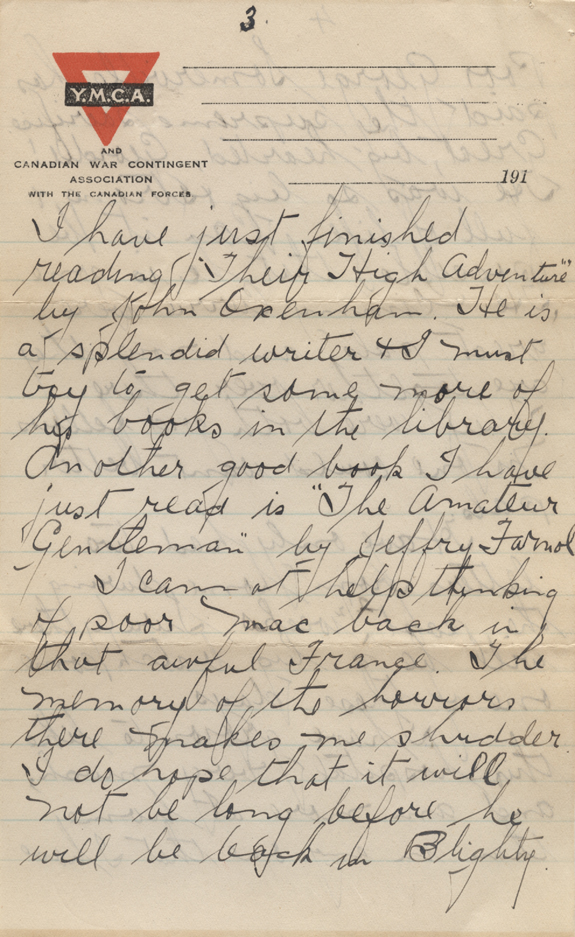 3.
Y.M.C.A.
AND
CANADIAN WAR CONTINGENT
ASSOCIATION
WITH THE CANADIAN FORCES.
191
I have just finished
reading "Their High Adventure"
by John Oxenham. He is
a splendid writer & I must
try to get some more of
his books in the library.
Another good book I have
just read is "The Amateur
Gentleman" by Jeffry Farnol
I cannot help thinking
of poor Mac back in
that awful France. The
memory of the horrors
there makes me shudder.
I do hope that it will
not be long before he
will be back in Blighty.